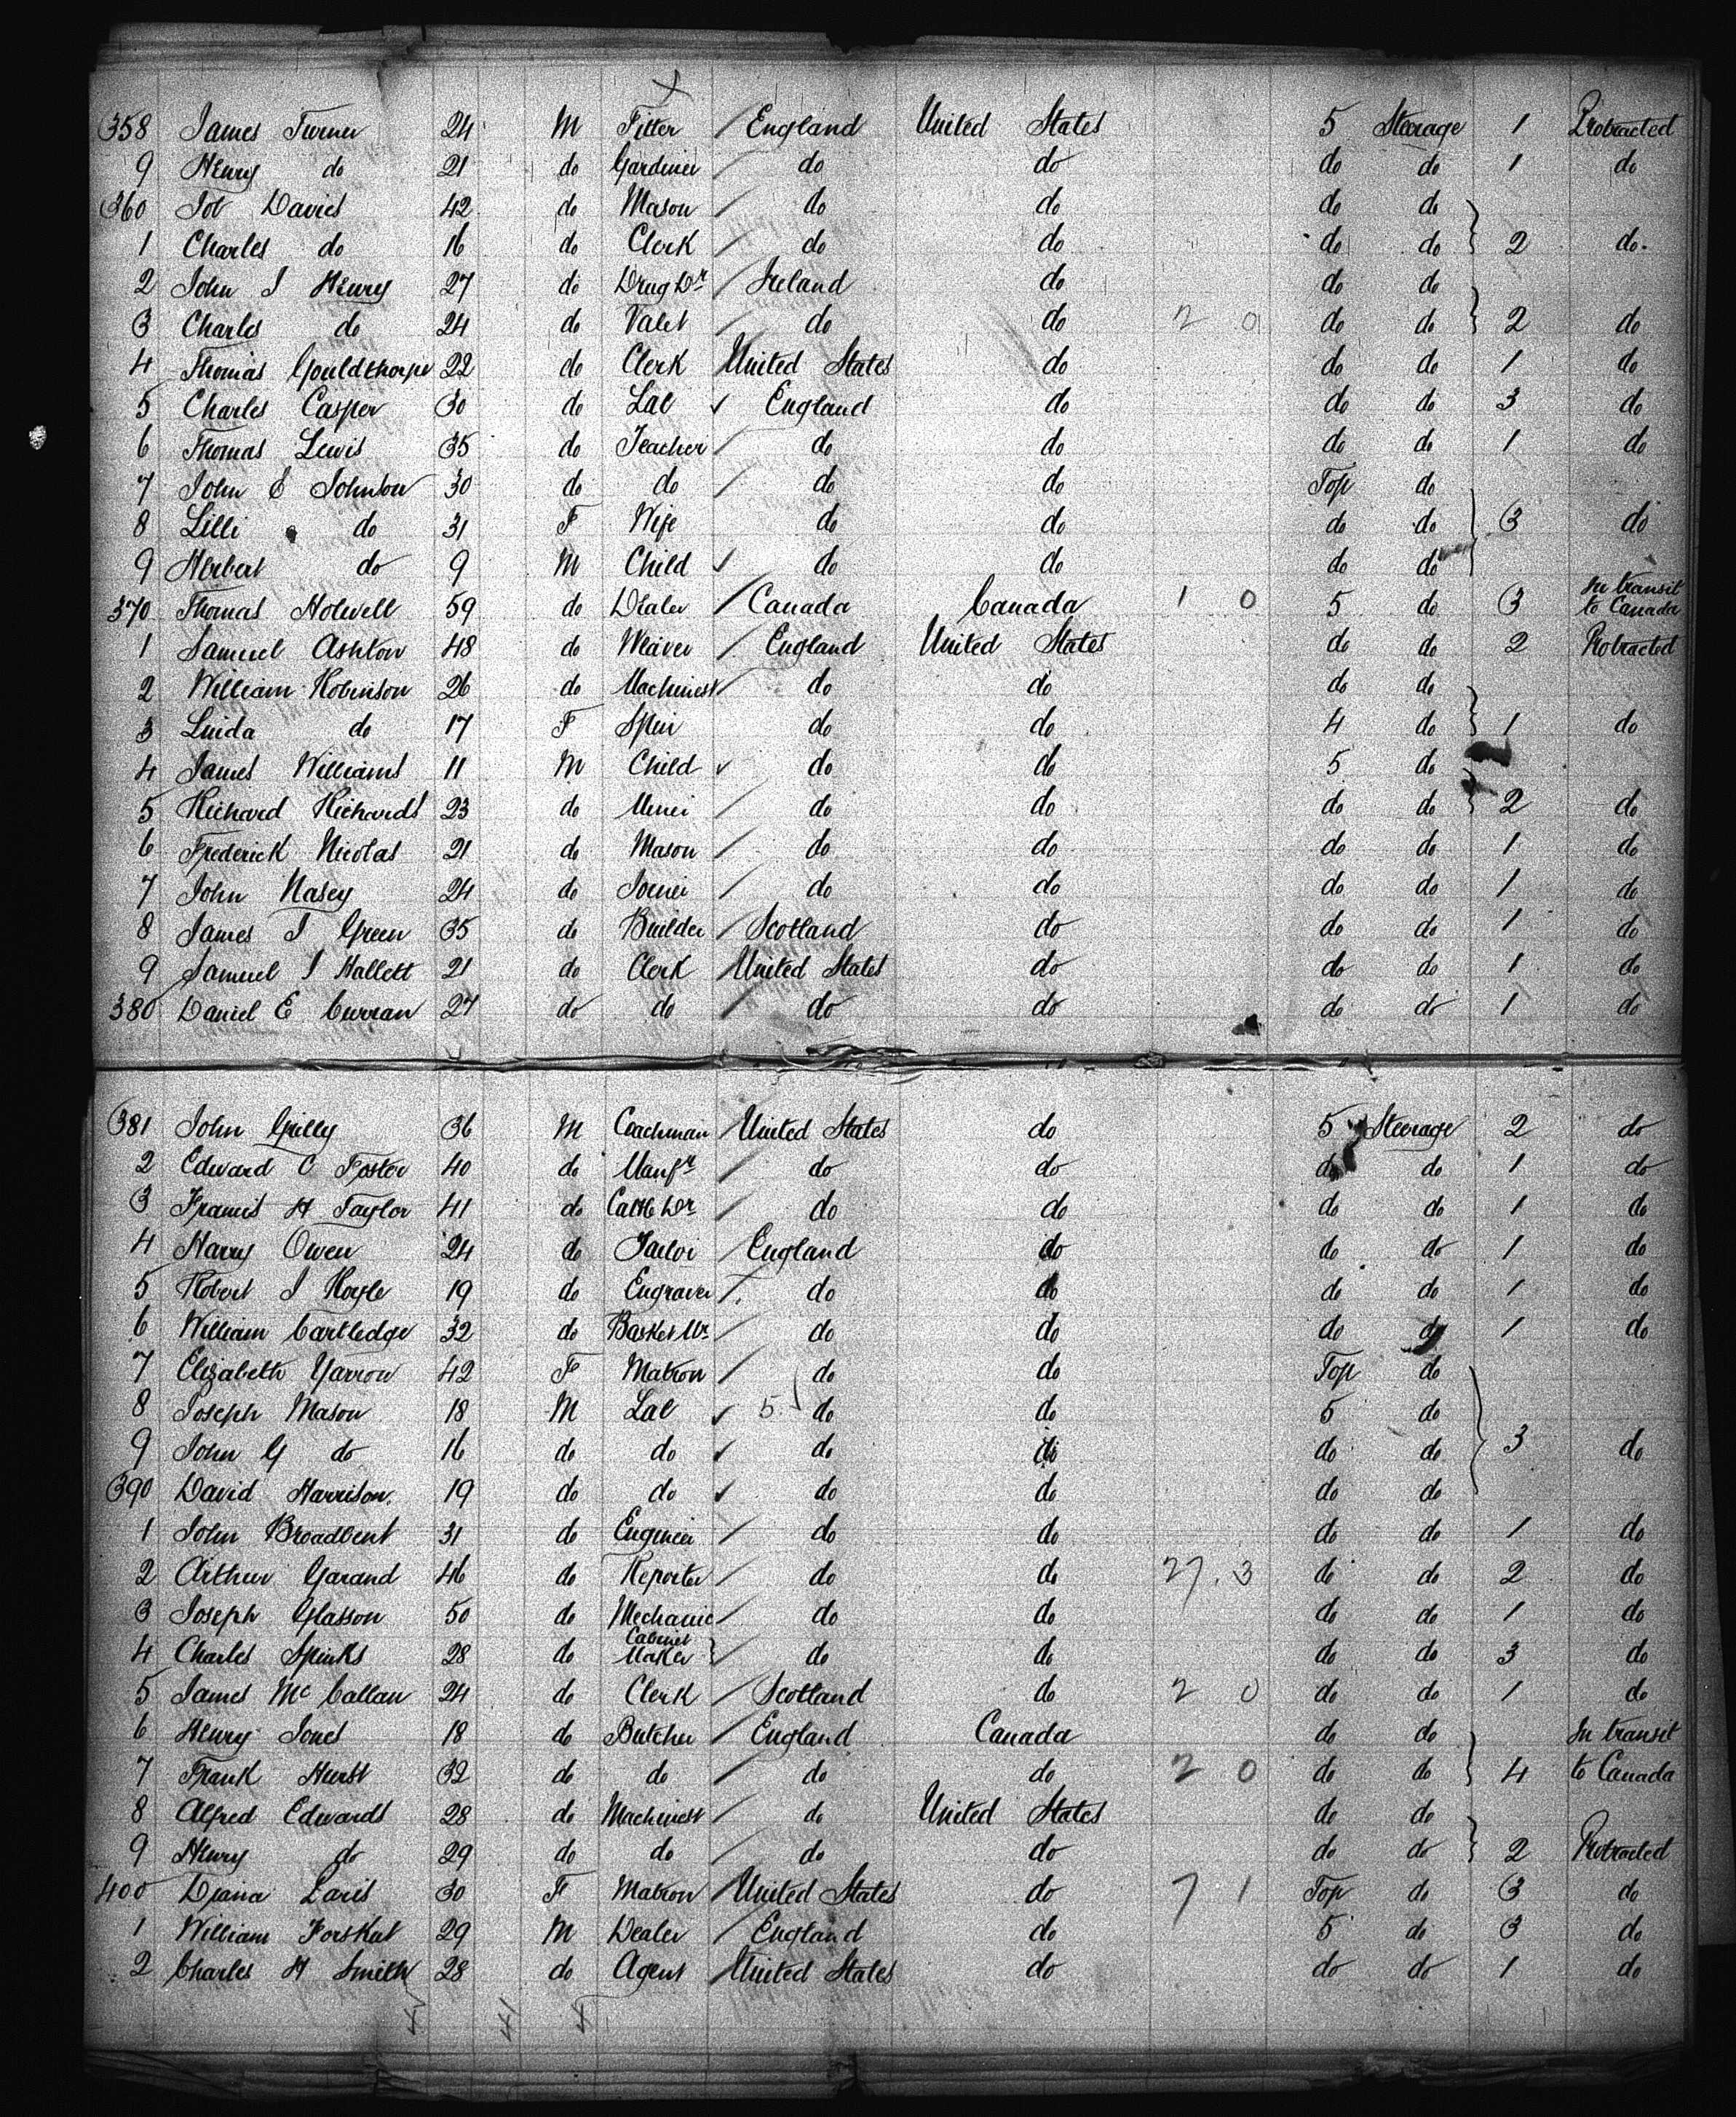 358 James Turner 24 M Fitter / England United States 5 Steerage 1 Protracted
9 Henry do 21 do Gardiner / do do do do 1 do
360 Job Davies 42 do Mason / do do do do
1 Charles do 16 do Clerk / do do do do 2 do.
2 John J Henry 27 do Drug Dr / Ireland do do do
3 Charles do 24 do Valet / do do 2 0 do do 2 do
4 Thomas Gouldthorpe 22 do Clerk United States do do do 1 do
5 Charles Casper 30 do Lab ✓ England do do do 3 do
6 Thomas Lewis 35 do Teacher / do do do do 1 do
7 John E Johnson 30 do do / do do Top do
8 Lilli do 31 F Wife do do do do 3 do
9 Herbert do 9 M Child ✓ do do do do
370 Thomas Holwell 59 do Dealer / Canada Canada 1 0 5 do 3 In transit to Canada
1 Samuel Ashton 48 do Weaver / England United States do do 2 Protracted
2 William Robinson 26 do Machinest / do do do do
3 Luida do 17 F Spin do do 4 do 1 do
4 James Williams 11 M Child ✓ do do 5 do
5 Richard Richards 23 do Miner / do do do do 2 do
6 Frederick Nicolas 21 do Mason / do do do do 1 do
7 John Nasey 24 do Joiner / do do do do 1 do
8 James T Green 35 do Builder / Scotland do do do 1 do
9 Samuel J Hallett 21 do Clerk / United States do do do 1 do
380 Daniel E Curran 27 do do / do do do do 1 do
381 John Grilly 36 M Coachman / United States do 5 Steerage 2 do
2 Edward C Foster 40 do Manfr / do do do do 1 do
3 Francis H Taylor 41 do Cattle Dr / do do do do 1 do
4 Harry Owen 24 do Tailor / England do do do 1 do
5 Robert J Hoyle 19 do Engraver / do do do do 1 do
6 William Cartledge 32 do Basket Mr / do do do do 1 do
7 Elizabeth Yarrow 42 F Matron / do do Top do
8 Joseph Mason 18 M Lab ✓ 5 do do 5 do
9 John G do 16 do do ✓ do do do do 3 do
390 David Harrison 19 do do ✓ do do do do
1 John Broadbent 31 do Engineer / do do do do 1 do
2 Arthur Garand 46 do Reporter / do do 27. 3 do do 2 do
3 Joseph Glasson 50 do Mechanic / do do do do 1 do
4 Charles Spinks 28 do Cabinet Maker / do do do do 3 do
5 James McCallan 24 do Clerk / Scotland do 2 0 do do 1 do
6 Henry Jones 18 do Butcher / England Canada do do In transit
7 Frank Hurst 32 do do / do do 2 0 do do 4 to Canada
8 Alfred Edwards 28 do Machinest / do United States do do
9 Henry do 29 do do / do do do do 2 Protracted
400 Diana Laris 30 F Matron / United States do 7 1 Top do 3 do
1 William Forskut 29 M Dealer / England do 5 do 3 do
2 Charles H Smith 28 do Agent / United States do do do 1 do
41